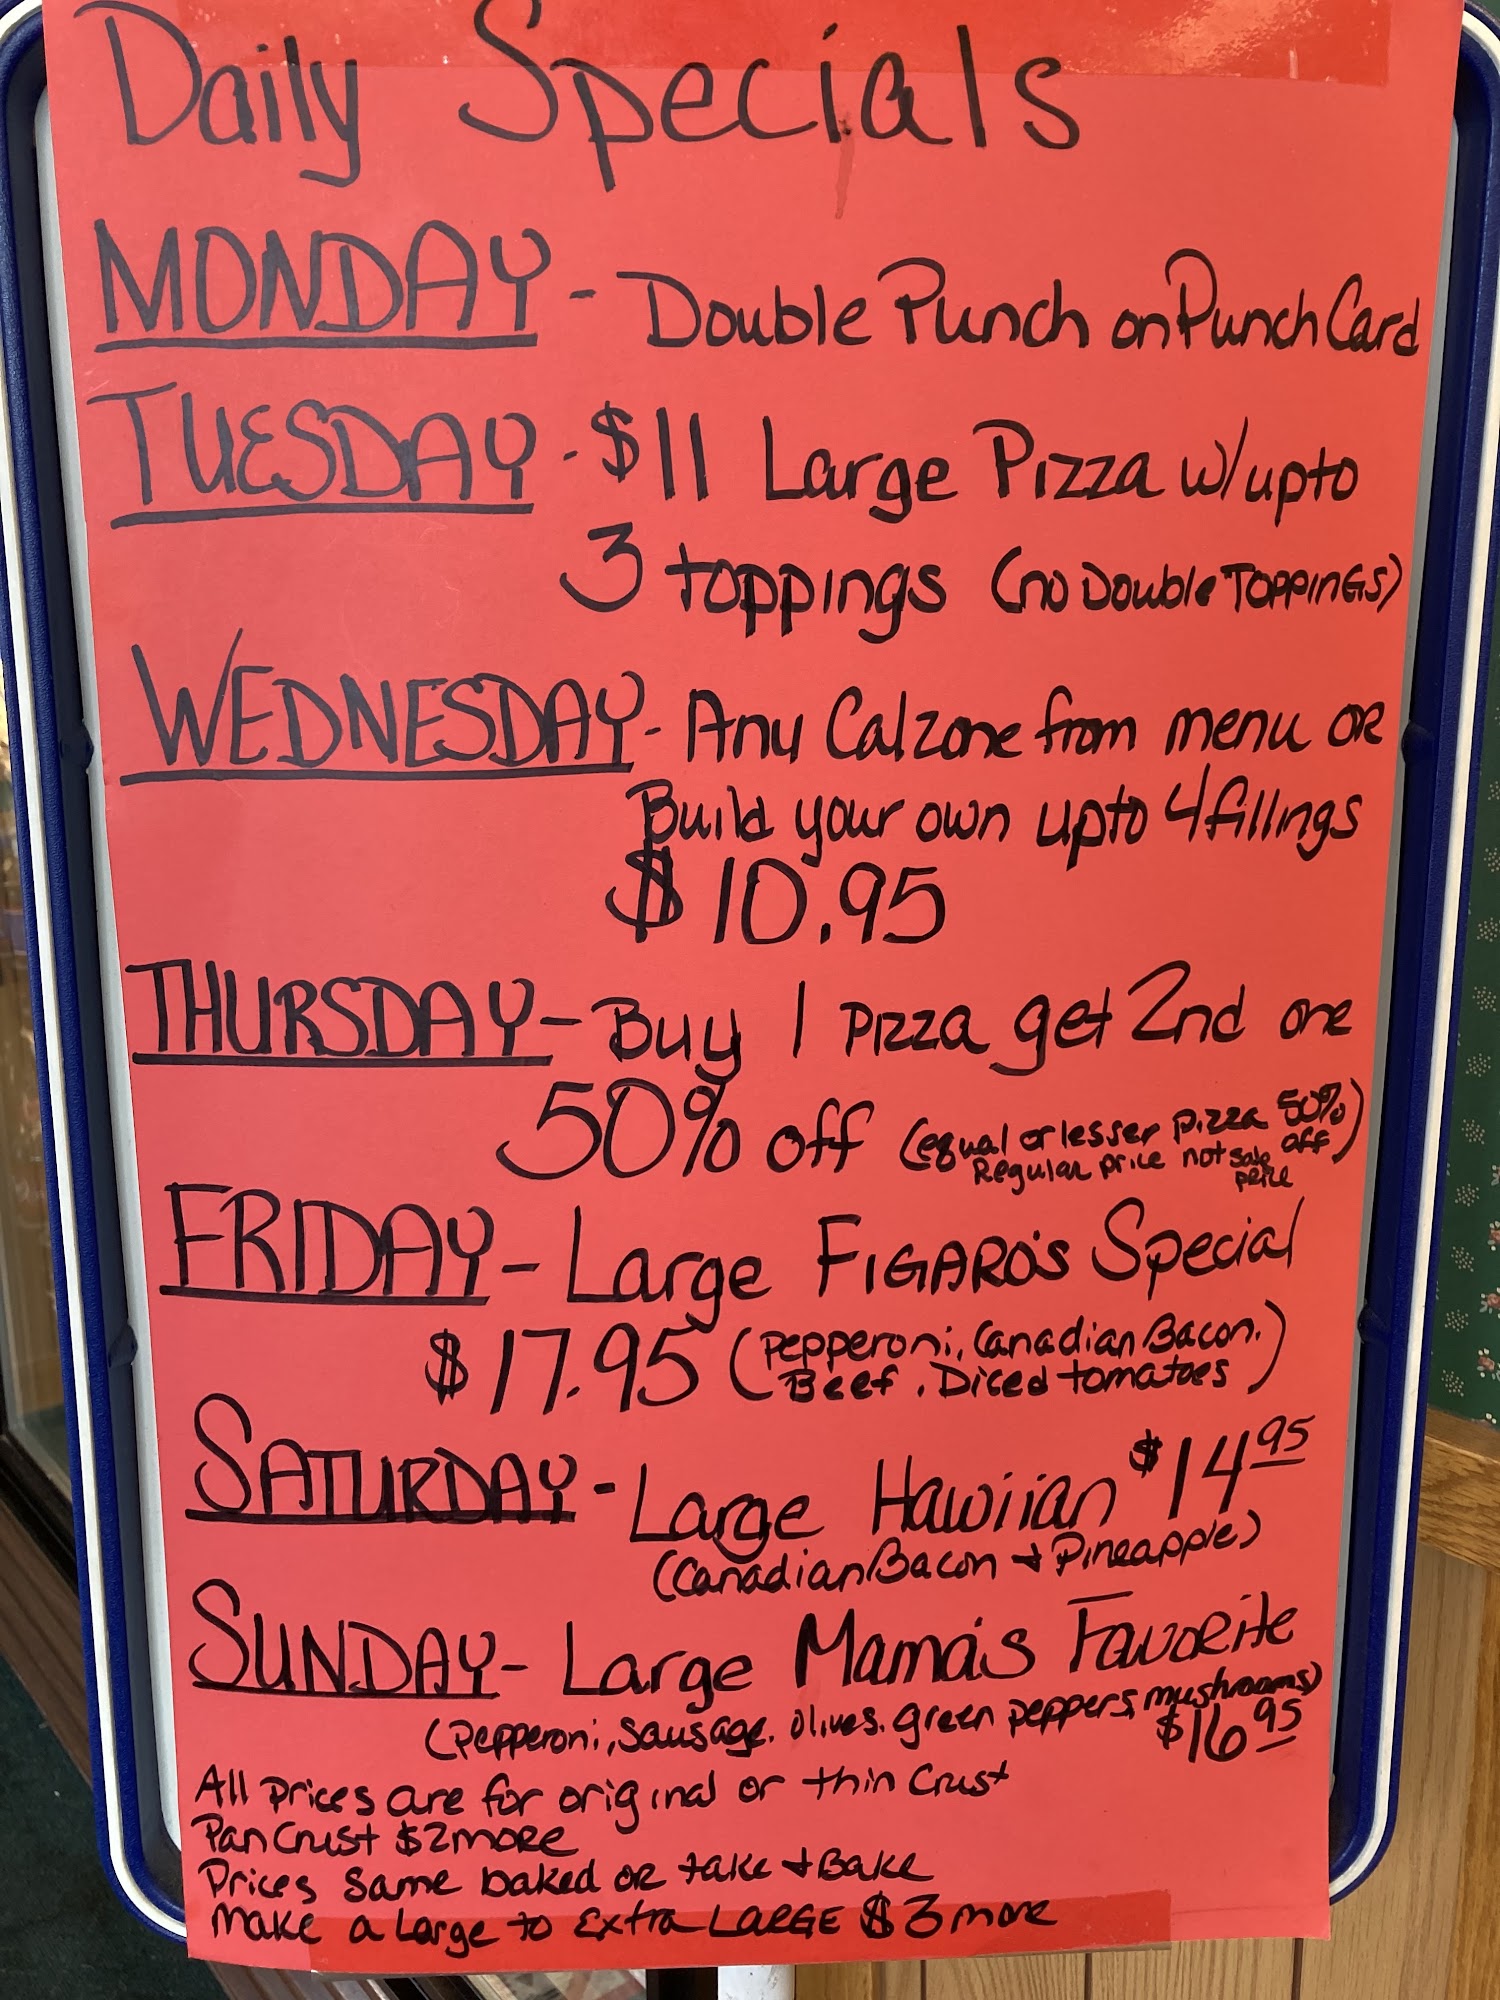 Daily Specials
MONDAY - Double Punch on Punch Card
TUESDAY - $11 Large Pizza w/ upto
3 toppings (no Double Toppings)
WEDNESDAY - Any Calzone from menu OR
Build your own upto 4 fillings
$10.95
THURSDAY - Buy 1 Pizza get 2nd one
50% off (equal or lesser pizza 50% off
Regular price not sale price)
FRIDAY - Large FIGARO'S Special
$17.95 (Pepperoni, Canadian Bacon,
Beef, Diced tomatoes)
SATURDAY - Large Hawiian $14.95
(Canadian Bacon + Pineapple)
SUNDAY - Large Mama's Favorite
(Pepperoni, Sausage, olives, green peppers, mushrooms)
$16.95
All Prices are for original or thin Crust
Pan Crust $2 more
Prices Same baked or take + Bake
Make a Large to Extra LARGE $3 more